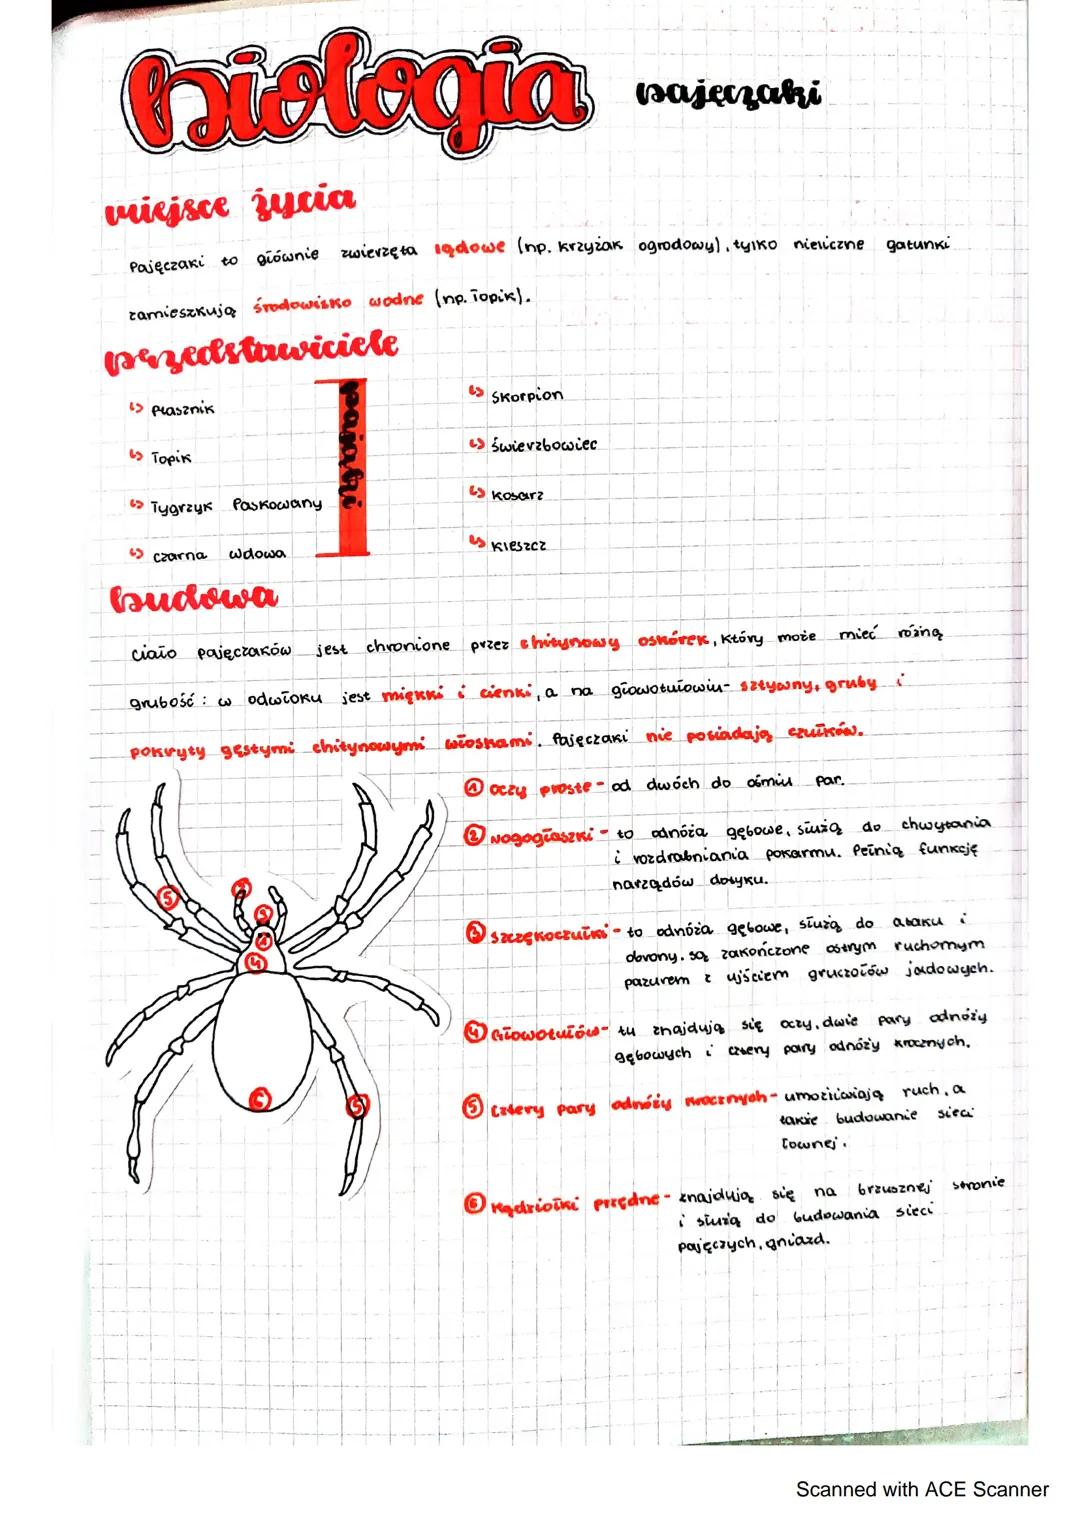 biologia pajęczaki
miejsce życia
Pajęczaki to głównie zwierzęta lądowe (np. krzyżak ogrodowy), tylko nieliczne gatunki
zamieszkują środowisko wodne (np. Topik).
przedstawiciele
↳ Ptasznik
↳ Topik
↳ Tygrzyk Paskowany
↳ czarna wdowa
pająki
↳ Skorpion
↳ Świerzbowiec
↳ Kosarz
↳ Kleszcz
budowa
Ciało pajęczaków jest chronione przez chitynowy oskórek, który może mieć różną
grubość: w odwłoku jest miękki i cienki, a na głowotułowiu- sztywny, gruby i
pokryty gęstymi chitynowymi włoskami. Pajęczaki nie posiadają czułków.
① oczy proste - od dwóch do ośmiu par.
② Nogogłaszki - to odnóża gębowe, służą do chwytania
i rozdrabniania pokarmu. Pełnią funkcję
narządów dotyku.
③ Szczękoczułki - to odnóża gębowe, służą do ataku i
obrony. są zakończone ostrym ruchomym
pazurem z ujściem gruczołów jadowych.
④ Głowotułów- tu znajdują się oczy, dwie pary odnóży
gębowych i cztery pary odnóży krocznych.
⑤ Cztery pary odnóży krocznych - umożliwiają ruch, a
także budowanie sieci
łownej.
⑥ Kądziołki przędne - znajdują się na brzusznej stronie
i służą do budowania sieci
pajęczych, gniazd.
5
2
3
1
4
6
5
Scanned with ACE Scanner